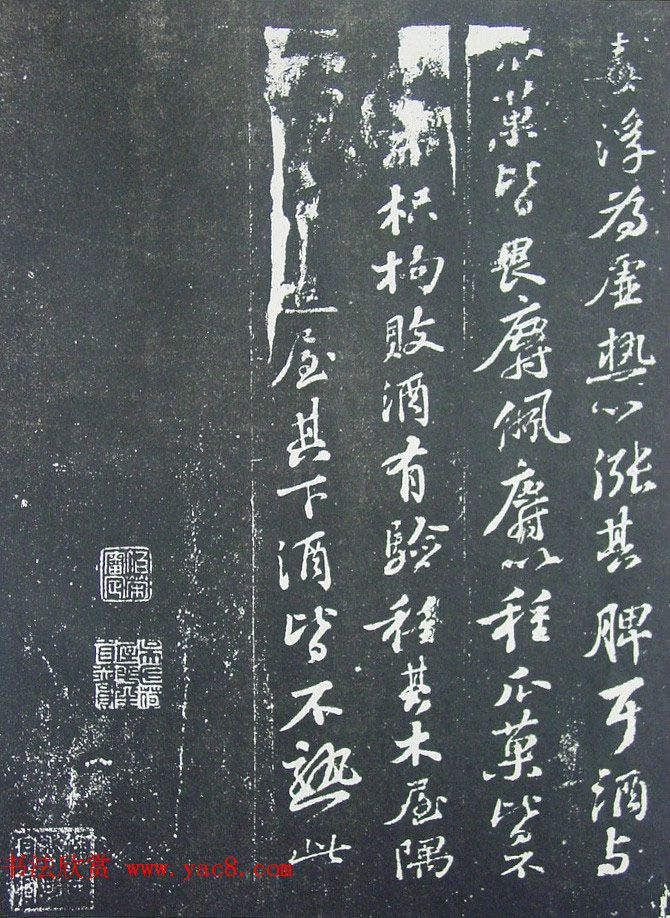 浮為虛熱以漲其脾耳酒与
瓜菓皆畏麝佩麝以種瓜菓皆不
枳枸敗酒有驗移其木屋隅
屋其下酒皆不熟此
书法欣赏 www.yac8.com